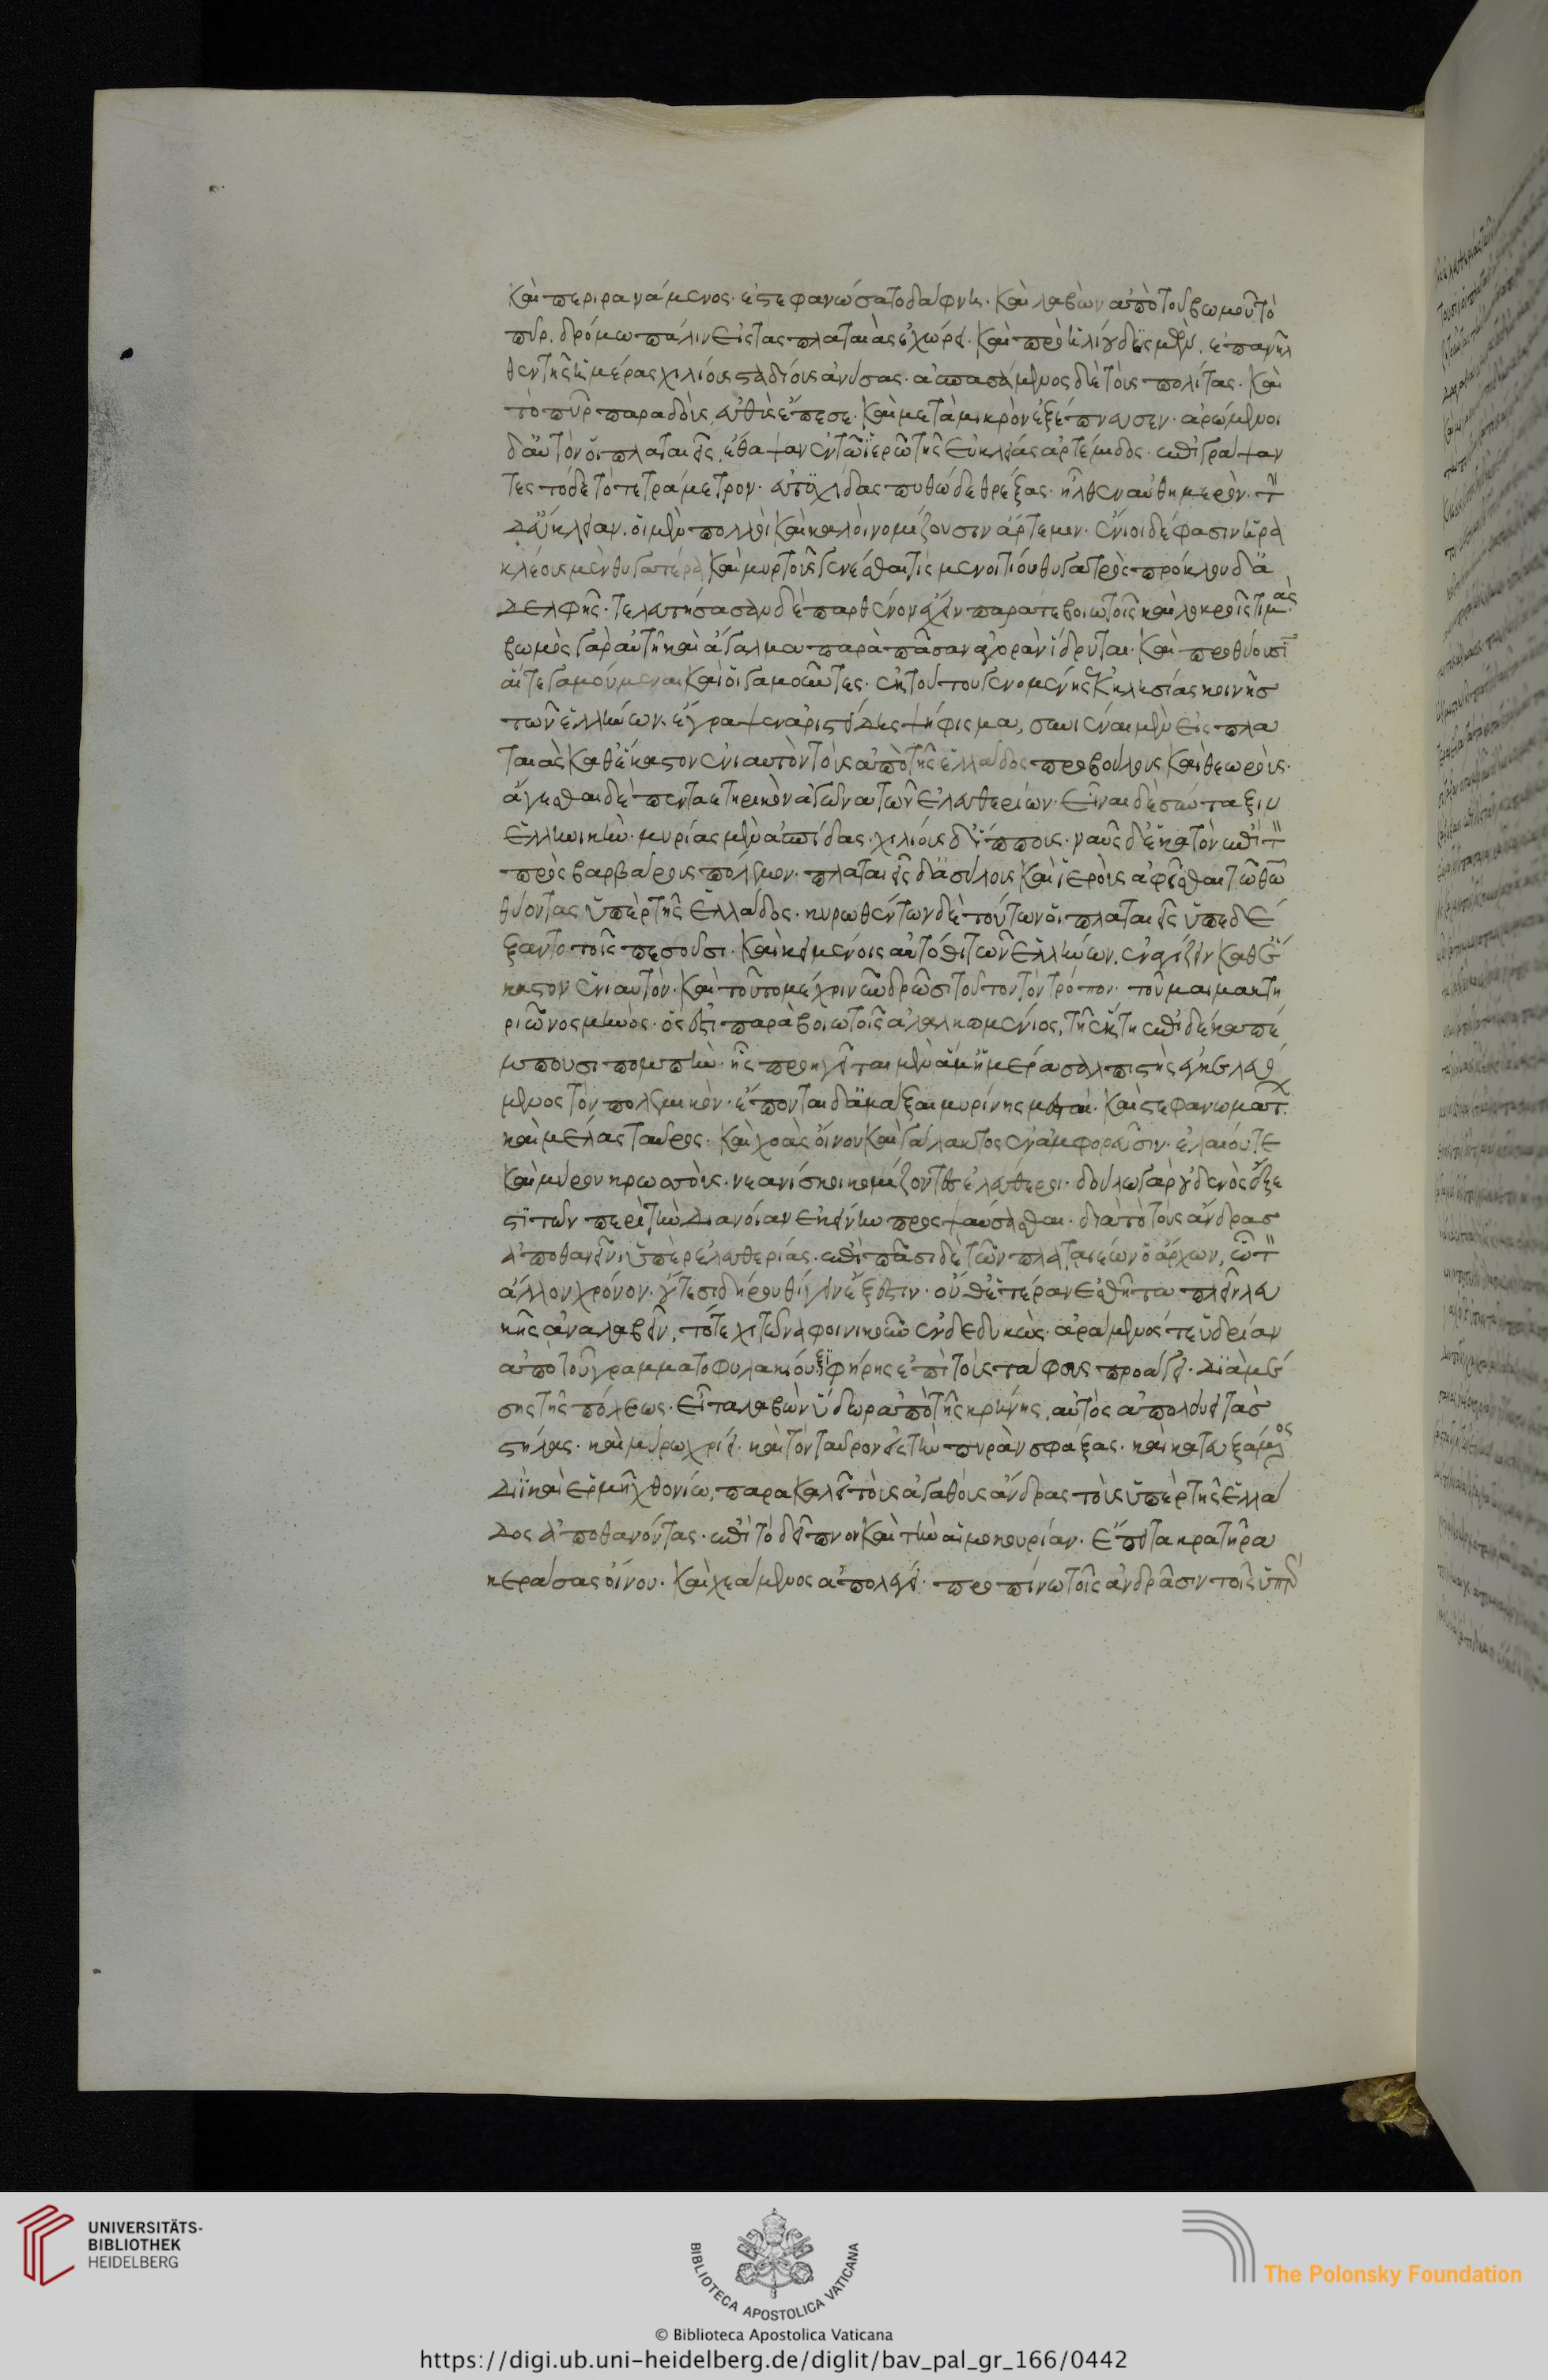 καὶ περιρανάμενος· ἐστεφανώσατο δάφνη· καὶ λαβὼν ἀπὸ τοῦ βωμοῦ τὸ
πῦρ, δρόμω πάλιν εἰς τὰς πλαταιὰς ἐχώρει· καὶ πρὸ ἡλίου δυσμῶν, ἐπανῆλ
θεν τῆς ἡμέρας χιλίους σταδίους ἀνύσας· ἀσπασάμενος δὲ τοὺς πολίτας· καὶ
τὸ πῦρ παραδοὺς, εὐθὺς ἔπεσε· καὶ μετὰ μικρὸν ἐξέπνευσεν· ἀράμενοι
δ' αὐτὸν οἱ πλαταιεῖς, ἔθαψαν ἐν τῶ ἱερῶ τῆς εὐκλείας ἀρτέμιδος· ἐπιγράψαν
τες τόδε τὸ τετράμετρον· εὐχίδας πυθῶδε θρέξας· ἦλθεν αὐθημερόν· τὴν
δ' εὔκλειαν, οἱ μὲν πολλοὶ καὶ καλοῦσι νομίζουσιν ἄρτεμιν· ἔνιοι δέ φασιν ἡρα
κλέους μὲν θυγατέρα καὶ μυρτοῦς γενέσθαι τῆς μενοιτίου θυγατρὸς πρόκλου δ' ἀ
δελφῆς· τελευτήσασαν δὲ παρθένον ἔχειν παρά τε βοιωτοῖς καὶ λοκροῖς τιμάς·
βωμὸς γὰρ αὐτῆ καὶ ἄγαλμα παρὰ πᾶσαν ἀγορὰν ἵδρυται· καὶ προθύουσιν
αἵ τε γαμούμεναι καὶ οἱ γαμοῦντες· ἐκ τούτου γενομένης ἐκκλησίας κοινῆς
τῶν ἑλλήνων. ἔγραψεν ἀριστείδης ψήφισμα, συνιέναι μὲν εἰς πλα
ταιὰς καθ' ἕκαστον ἐνιαυτὸν τοὺς ἀπὸ τῆς ἑλλάδος προβούλους καὶ θεωρούς·
ἄγεσθαι δὲ πενταετηρικὸν ἀγῶνα τῶν ἐλευθερίων· εἶναι δὲ σύνταξιν
ἑλληνικὴν· μυρίας μὲν ἀσπίδας· χιλίους δ' ἵππους· ναῦς δ' ἑκατὸν ἐπὶ τὸν
πρὸς βαρβάρους πόλεμον· πλαταιεῖς δ' ἀσύλους καὶ ἱεροὺς ἀφεῖσθαι τῶ θεῶ
θύοντας ὑπὲρ τῆς ἑλλάδος· κυρωθέντων δὲ τούτων οἱ πλαταιεῖς ὑπεδέ
ξαντο τοῖς πεσοῦσι· καὶ κειμένοις αὐτόθι τῶν ἑλλήνων, ἐναγίζειν καθ' ἕ
καστον ἐνιαυτόν· καὶ τοῦτο μέχρι νῦν δρῶσι τοῦτον τὸν τρόπον· τοῦ μαιμακτη
ριῶνος μηνὸς· ὅς ἐστι παρὰ βοιωτοῖς ἀλαλκομένιος, τῆ ἕκτη ἐπὶ δέκα πέ
μπουσι πομπὴν· ἧς προηγεῖται μὲν ἅμ' ἡμέρα σαλπιστὴς ἐγκελευό
μενος τὸν πολεμικόν· ἕπονται δ' ἅμαξαι μυρίνης μεσταὶ· καὶ στεφανωμάτων
καὶ μέλας ταῦρος· καὶ χοὰς οἴνου καὶ γάλακτος ἐν ἀμφορεῦσιν· ἐλαίου τε
καὶ μύρου κρωσσοὺς· νεανίσκοι κομίζοντες ἐλεύθεροι· δούλω γὰρ οὐδενὸς ἔξε
στι τῶν περὶ τὴν διανοίαν ἐκείνην προσψαύσασθαι· διὰ τὸ τοὺς ἄνδρας
ἀποθανεῖν ὑπὲρ ἐλευθερίας· ἐπὶ πᾶσι δὲ τῶν πλαταιέων ὁ ἄρχων, ὧ τὸν
ἄλλον χρόνον· οὔτε σιδήρου θίγειν ἔξεστιν· οὔθ' ἑτέραν ἐσθῆτα πλὴν λευ
κῆς ἀναλαβεῖν, τότε χιτῶνα φοινικοῦν ἐνδεδυκώς· ἀράμενός τε ὑδρίαν
ἀπὸ τοῦ γραμματοφυλακίου ξιφήρης ἐπὶ τοὺς τάφους προάγει· διὰ μέ
σης τῆς πόλεως· εἶτα λαβὼν ὕδωρ ἀπὸ τῆς κρήνης, αὐτὸς ἀπολούει τὰς
στήλας· καὶ μύρω χρίει· καὶ τὸν ταῦρον εἰς τὴν πυρὰν σφάξας· καὶ κατευξάμενος
διῒ καὶ ἑρμῆ χθονίω, παρακαλεῖ τοὺς ἀγαθοὺς ἄνδρας τοὺς ὑπὲρ τῆς ἑλλά
δος ἀποθανόντας· ἐπὶ τὸ δεῖπνον καὶ τὴν αἱμοκουρίαν· ἔπειτα κρατῆρα
κεράσας οἴνου· καὶ χεάμενος ἀπολέγει· προπίνω τοῖς ἀνδράσιν τοῖς ὑπὲρ
UNIVERSITÄTS-
BIBLIOTHEK
HEIDELBERG
BIBLIOTECA APOSTOLICA VATICANA
The Polonsky Foundation
© Biblioteca Apostolica Vaticana
https://digi.ub.uni-heidelberg.de/diglit/bav_pal_gr_166/0442